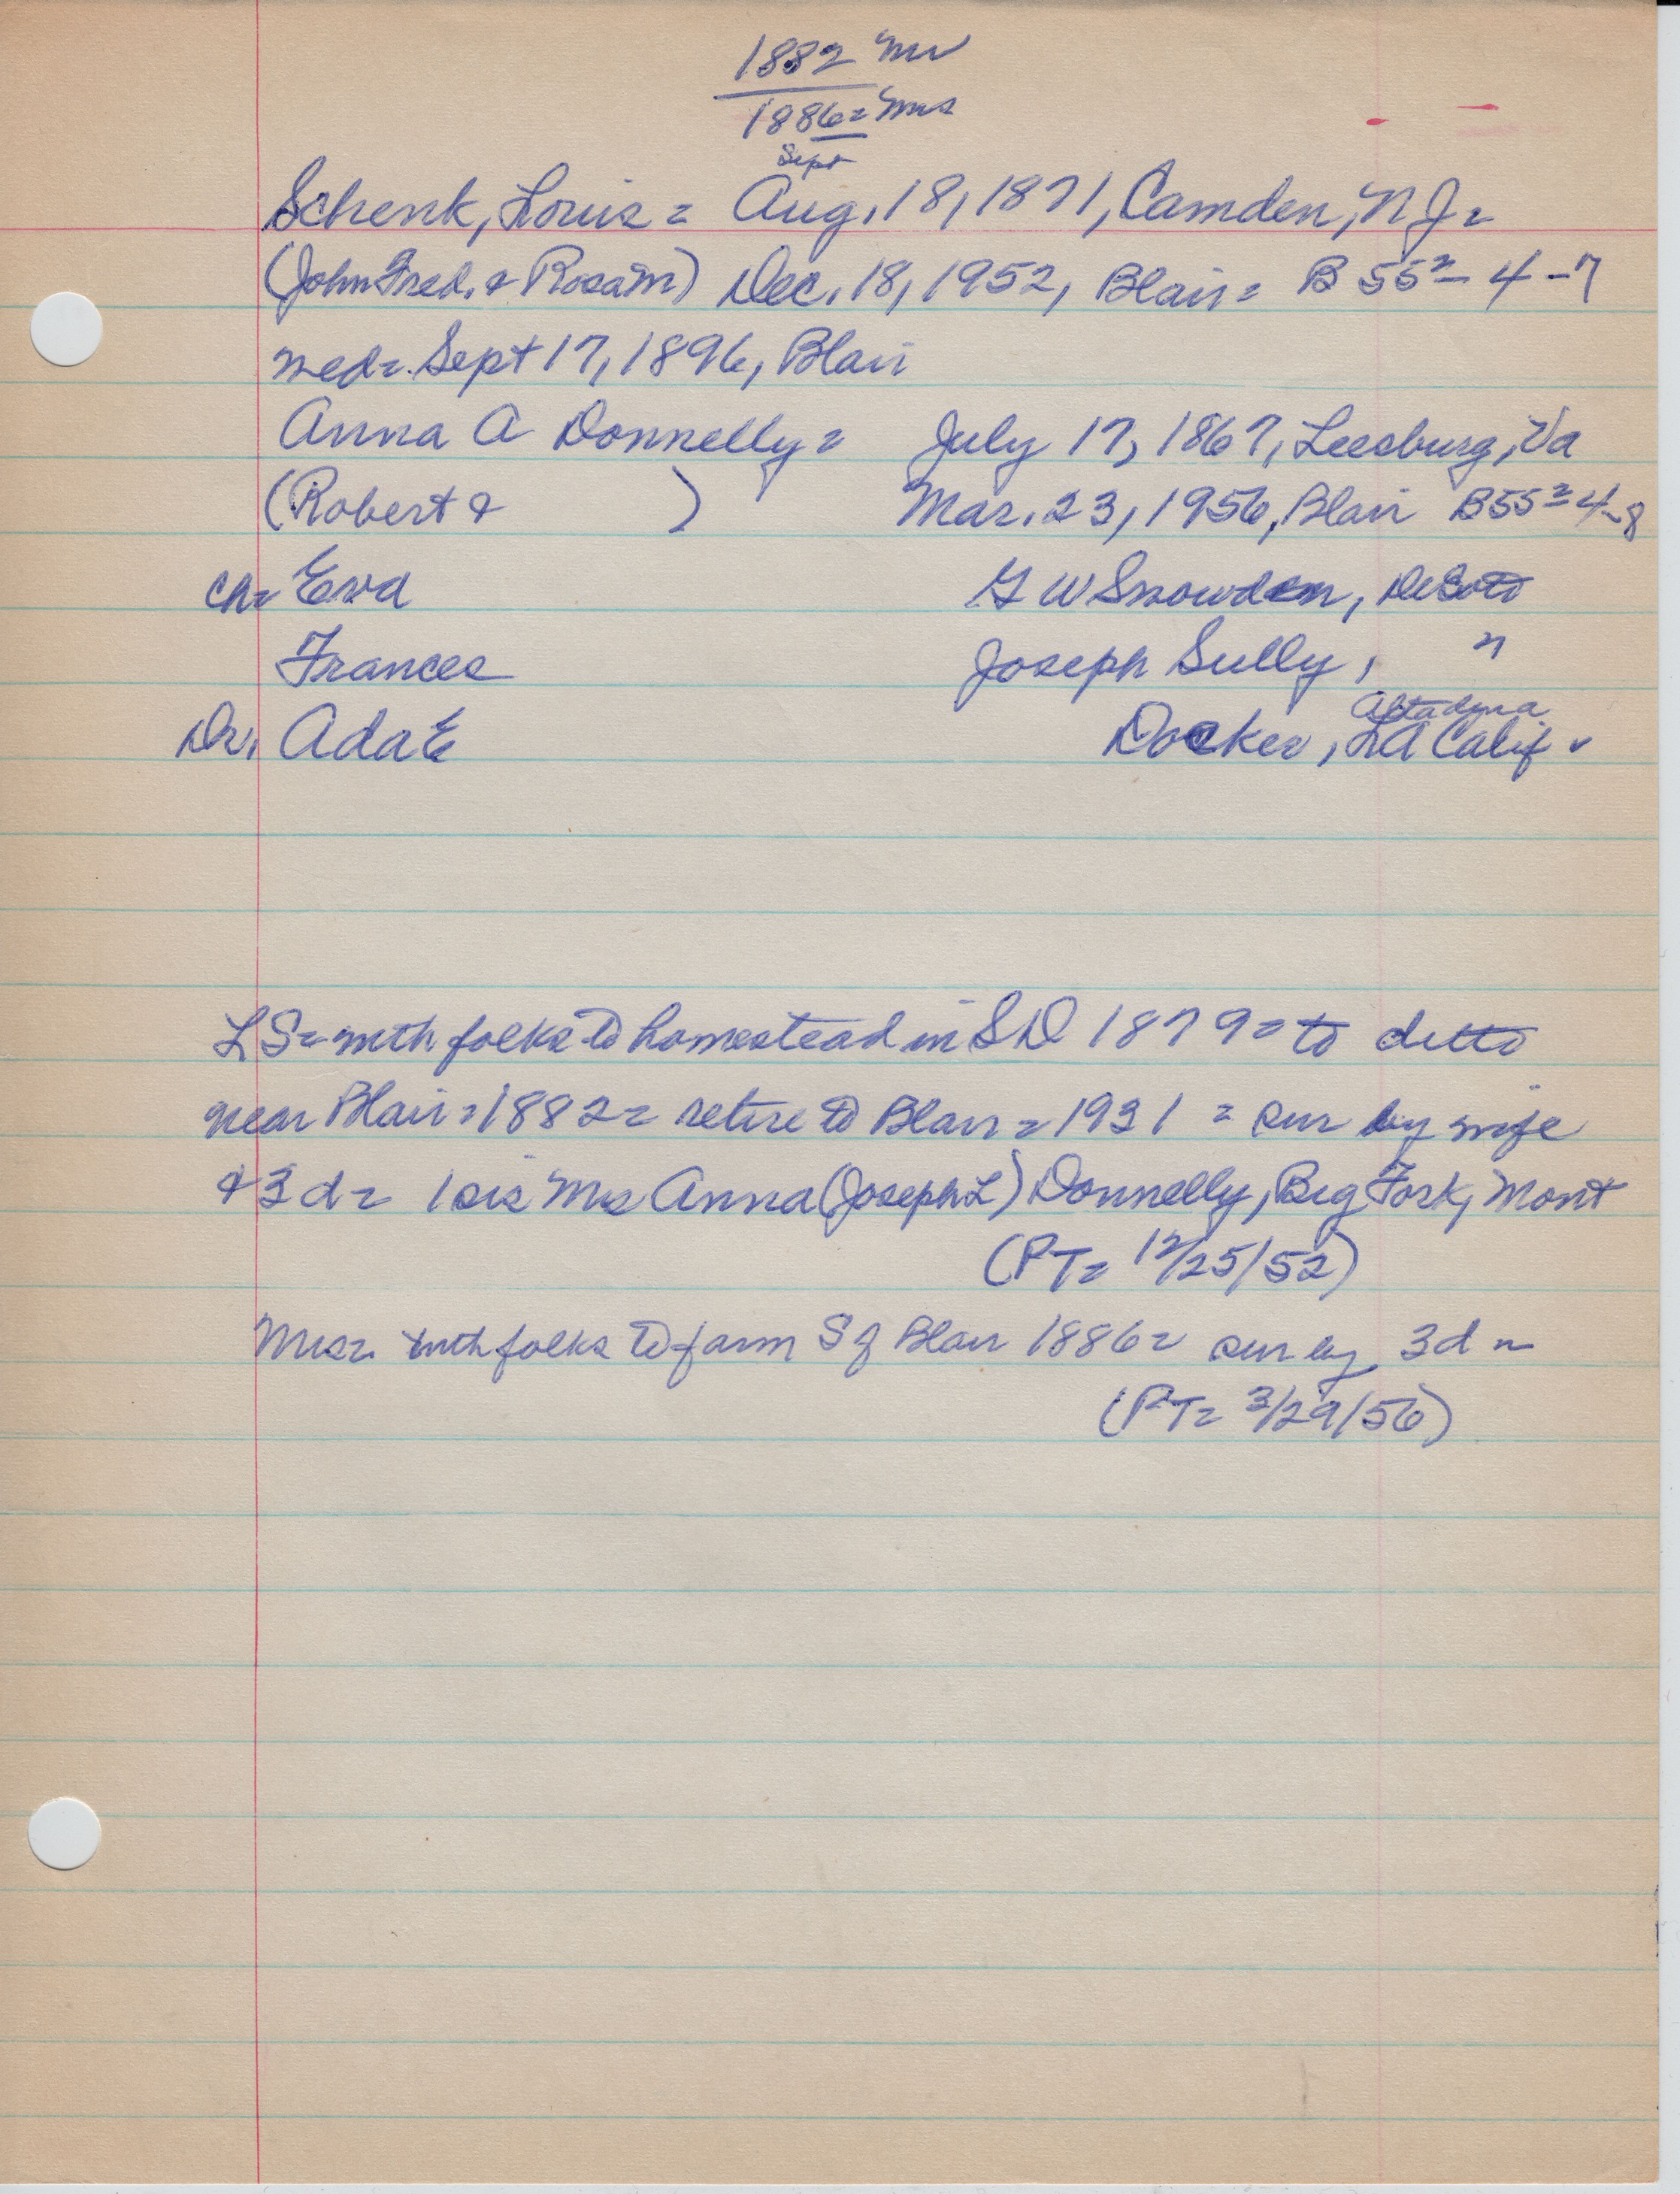 1882 Mr
1886= Mrs
Sept
Schenk, Louis = Aug. 18, 1871, Camden, N J =
(John Fred. & Rosa M) Dec. 18, 1952, Blair = B 55² - 4 - 7
wed = Sept 17, 1896, Blair
Anna A Donnelly = July 17, 1867, Leesburg, Va
(Robert & ) Mar. 23, 1956, Blair B55² 4-8
ch= Eva G W Snowden, DeSoto
Frances Joseph Sully, "
Altadena
Dr. Ada E Docker, LA Calif
LS= with folks to homestead in S D 1879 = to ditto
near Blair = 1882 = retire to Blair = 1931 = sur by wife
& 3 d = 1 sis Mrs Anna (Joseph L) Donnelly, Big Fork, Mont
(PT= 12/25/52)
Mrs= with folks to farm S of Blair 1886 = sur by 3d =
(PT= 3/29/56)